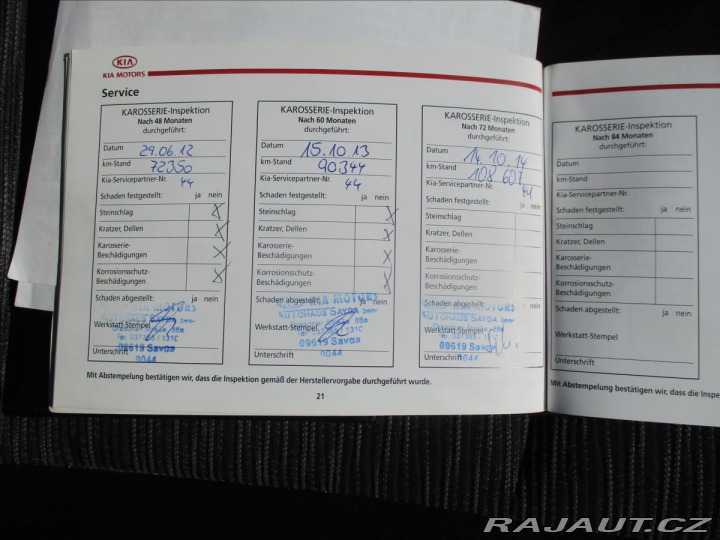 KIA
KIA MOTORS
Service
KAROSSERIE-Inspektion
Nach 48 Monaten
durchgeführt:
Datum 29.06.12
km-Stand 72350
Kia-Servicepartner-Nr. 44
Schaden festgestellt: ja nein
Steinschlag
Kratzer, Dellen
Karosserie-
Beschädigungen
Korrosionsschutz-
Beschädigungen
Schaden abgestellt: ja nein
KIA MOTORS
AUTOHAUS SAYDA
Werkstatt-Stempel
09619 Sayda
0044
Unterschrift
KAROSSERIE-Inspektion
Nach 60 Monaten
durchgeführt:
Datum 15.10.13
km-Stand 90344
Kia-Servicepartner-Nr. 44
Schaden festgestellt: ja nein
Steinschlag
Kratzer, Dellen
Karosserie-
Beschädigungen
Korrosionsschutz-
Beschädigungen
Schaden abgestellt: ja nein
KIA MOTORS
AUTOHAUS SAYDA
Werkstatt-Stempel
09619 Sayda
0044
Unterschrift
KAROSSERIE-Inspektion
Nach 72 Monaten
durchgeführt:
Datum 14.10.14
km-Stand 108 607
Kia-Servicepartner-Nr. 44
Schaden festgestellt: ja nein
Steinschlag
Kratzer, Dellen
Karosserie-
Beschädigungen
Korrosionsschutz-
Beschädigungen
Schaden abgestellt: ja nein
KIA MOTORS
AUTOHAUS SAYDA
Werkstatt-Stempel
09619 Sayda
0044
Unterschrift
Mit Abstempelung bestätigen wir, dass die Inspektion gemäß der Herstellervorgabe durchgeführt wurde.
21
KAROSSERIE-Inspektion
Nach 84 Monaten
durchgeführt:
Datum
km-Stand
Kia-Servicepartner-Nr.
Schaden festgestellt: ja nein
Steinschlag
Kratzer, Dellen
Karosserie-
Beschädigungen
Korrosionsschutz-
Beschädigungen
Schaden abgestellt: ja nein
Werkstatt-Stempel
Unterschrift
Mit Abstempelung bestätigen wir, dass die Inspe
RAJAUT.CZ